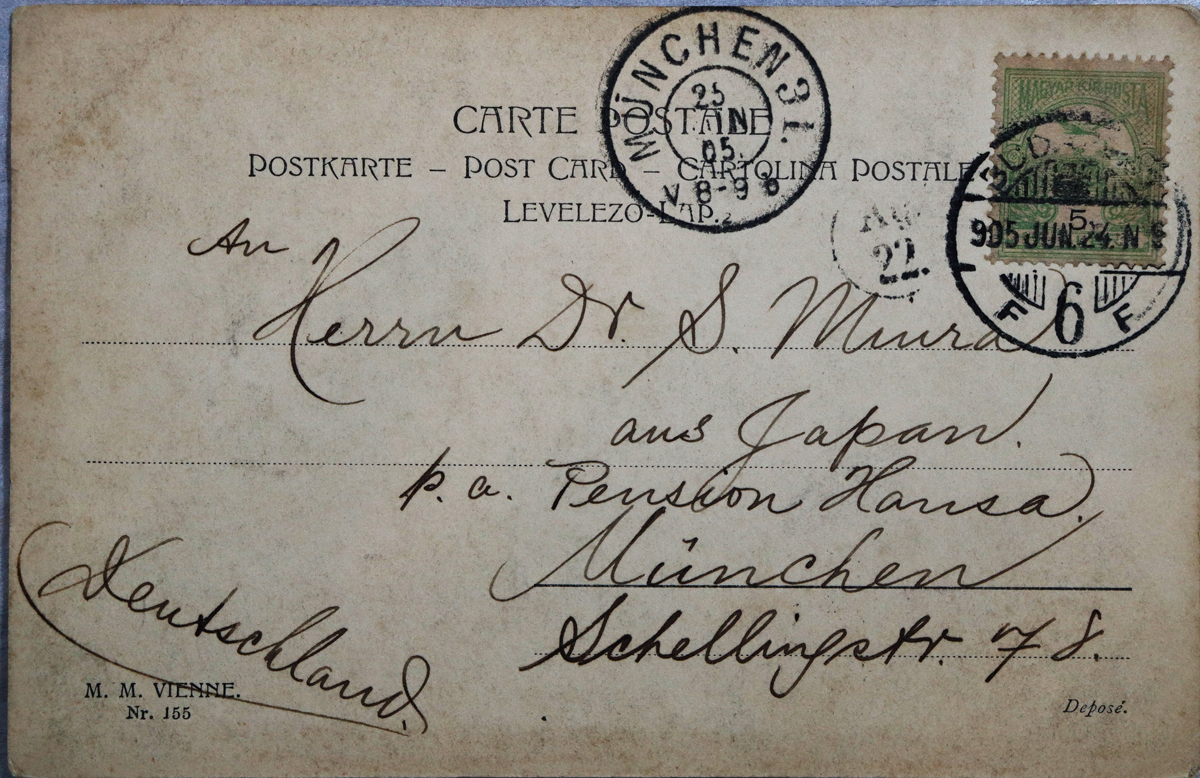 CARTE POSTALE
POSTKARTE – POST CARD – CARTOLINA POSTALE
LEVELEZO-LAP.
MÜNCHEN 31.
25
JUN
05.
V. 8-9
MAGYAR KIR. POSTA
5
905 JUN. 24. N
F 6 F
22.
An
Herrn Dr. S. Miura
aus Japan.
p. a. Pension Hansa,
München
Schellingstr. 78.
Deutschland.
M. M. VIENNE.
Nr. 155
Deposé.